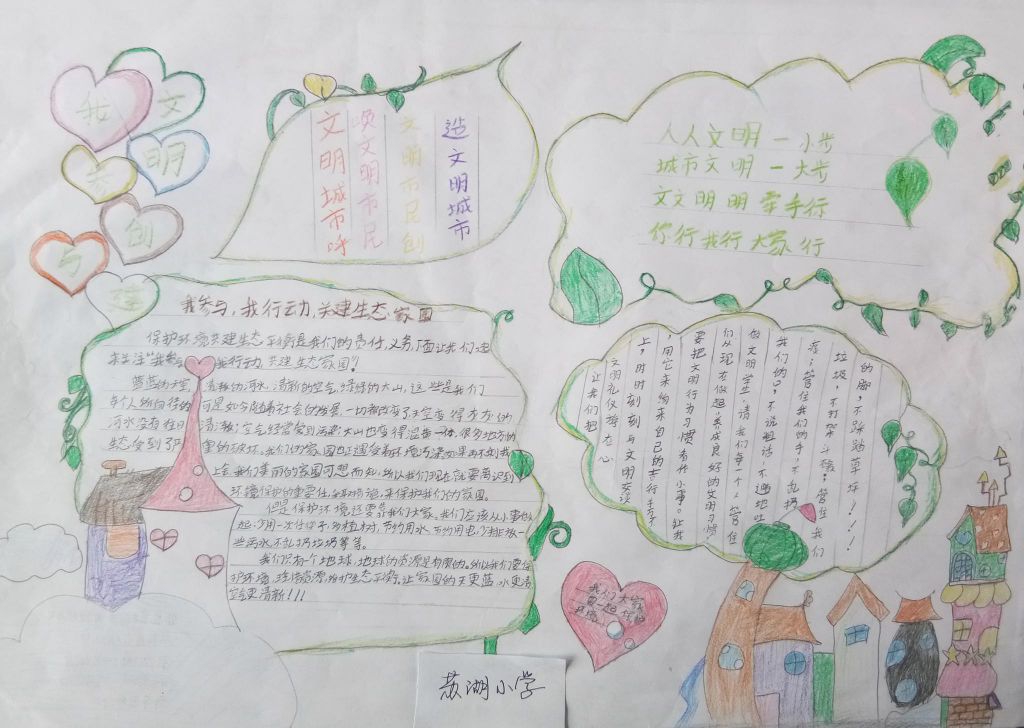 我
文
明
参
创
与
文明城市呼
唤文明市民
文明市民创
造文明城市
人人文明一小步
城市文明一大步
文文明明牵手行
你行我行大家行
我参与,我行动,共建生态家园
保护环境共建生态平衡是我们的责任,义务,下面让我们速
来关注“我参 我行动,共建生态家园”
蓝蓝的天空 清澈的河水,清新的空气,绿绿的大山,这些是我们
每个人所向往的 可是如今随着社会的发展,一切都改变了天空变得
河水没有往日 清澈;空气经常受到污染;大山也变得 很多地方的
生态受到了严 重的破坏。我们的家园也正遭受着环境污染如果再不刻我
上会 我们美丽的家园可想而知,所以我们现在就要意识到
环境保护的重要性,来保护我们的家园。
但是保护环境还要靠我们大家。我们应该从小事做
起:少用一次性筷子,多植树,节约用水,节约用电,少排放一
些污水,不乱扔垃圾等等。
我们只有个地球,地球的资源是有限的。所以我们要保
护环境,珍惜资源,维护生态平衡,让家园的天更蓝,水更清
空气更清新!!!
文明礼仪推在心
让我们把
上,时时刻刻与文明交谈
,用它来约束自己的言行
要把文明行为习惯看作小事。让我
们从现在做起,养成良好的文明习惯
做文明学生,请我们每一个人管住
我们的口,不说粗话,不随地吐
痰;管住我们的手,不乱扔
垃圾,不打架斗殴;管住我们
的脚,不践踏草坪!!!
我们大家
要一起保护
环境
苏湖小学